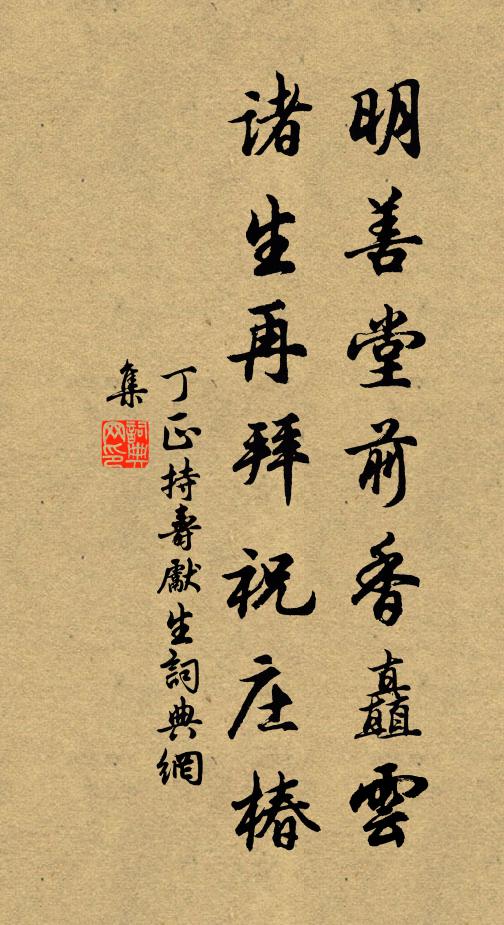 明善堂前香矗雲
諸生再拜祝庄椿
丁正持壽獻生詞典網
集
詞典
网印